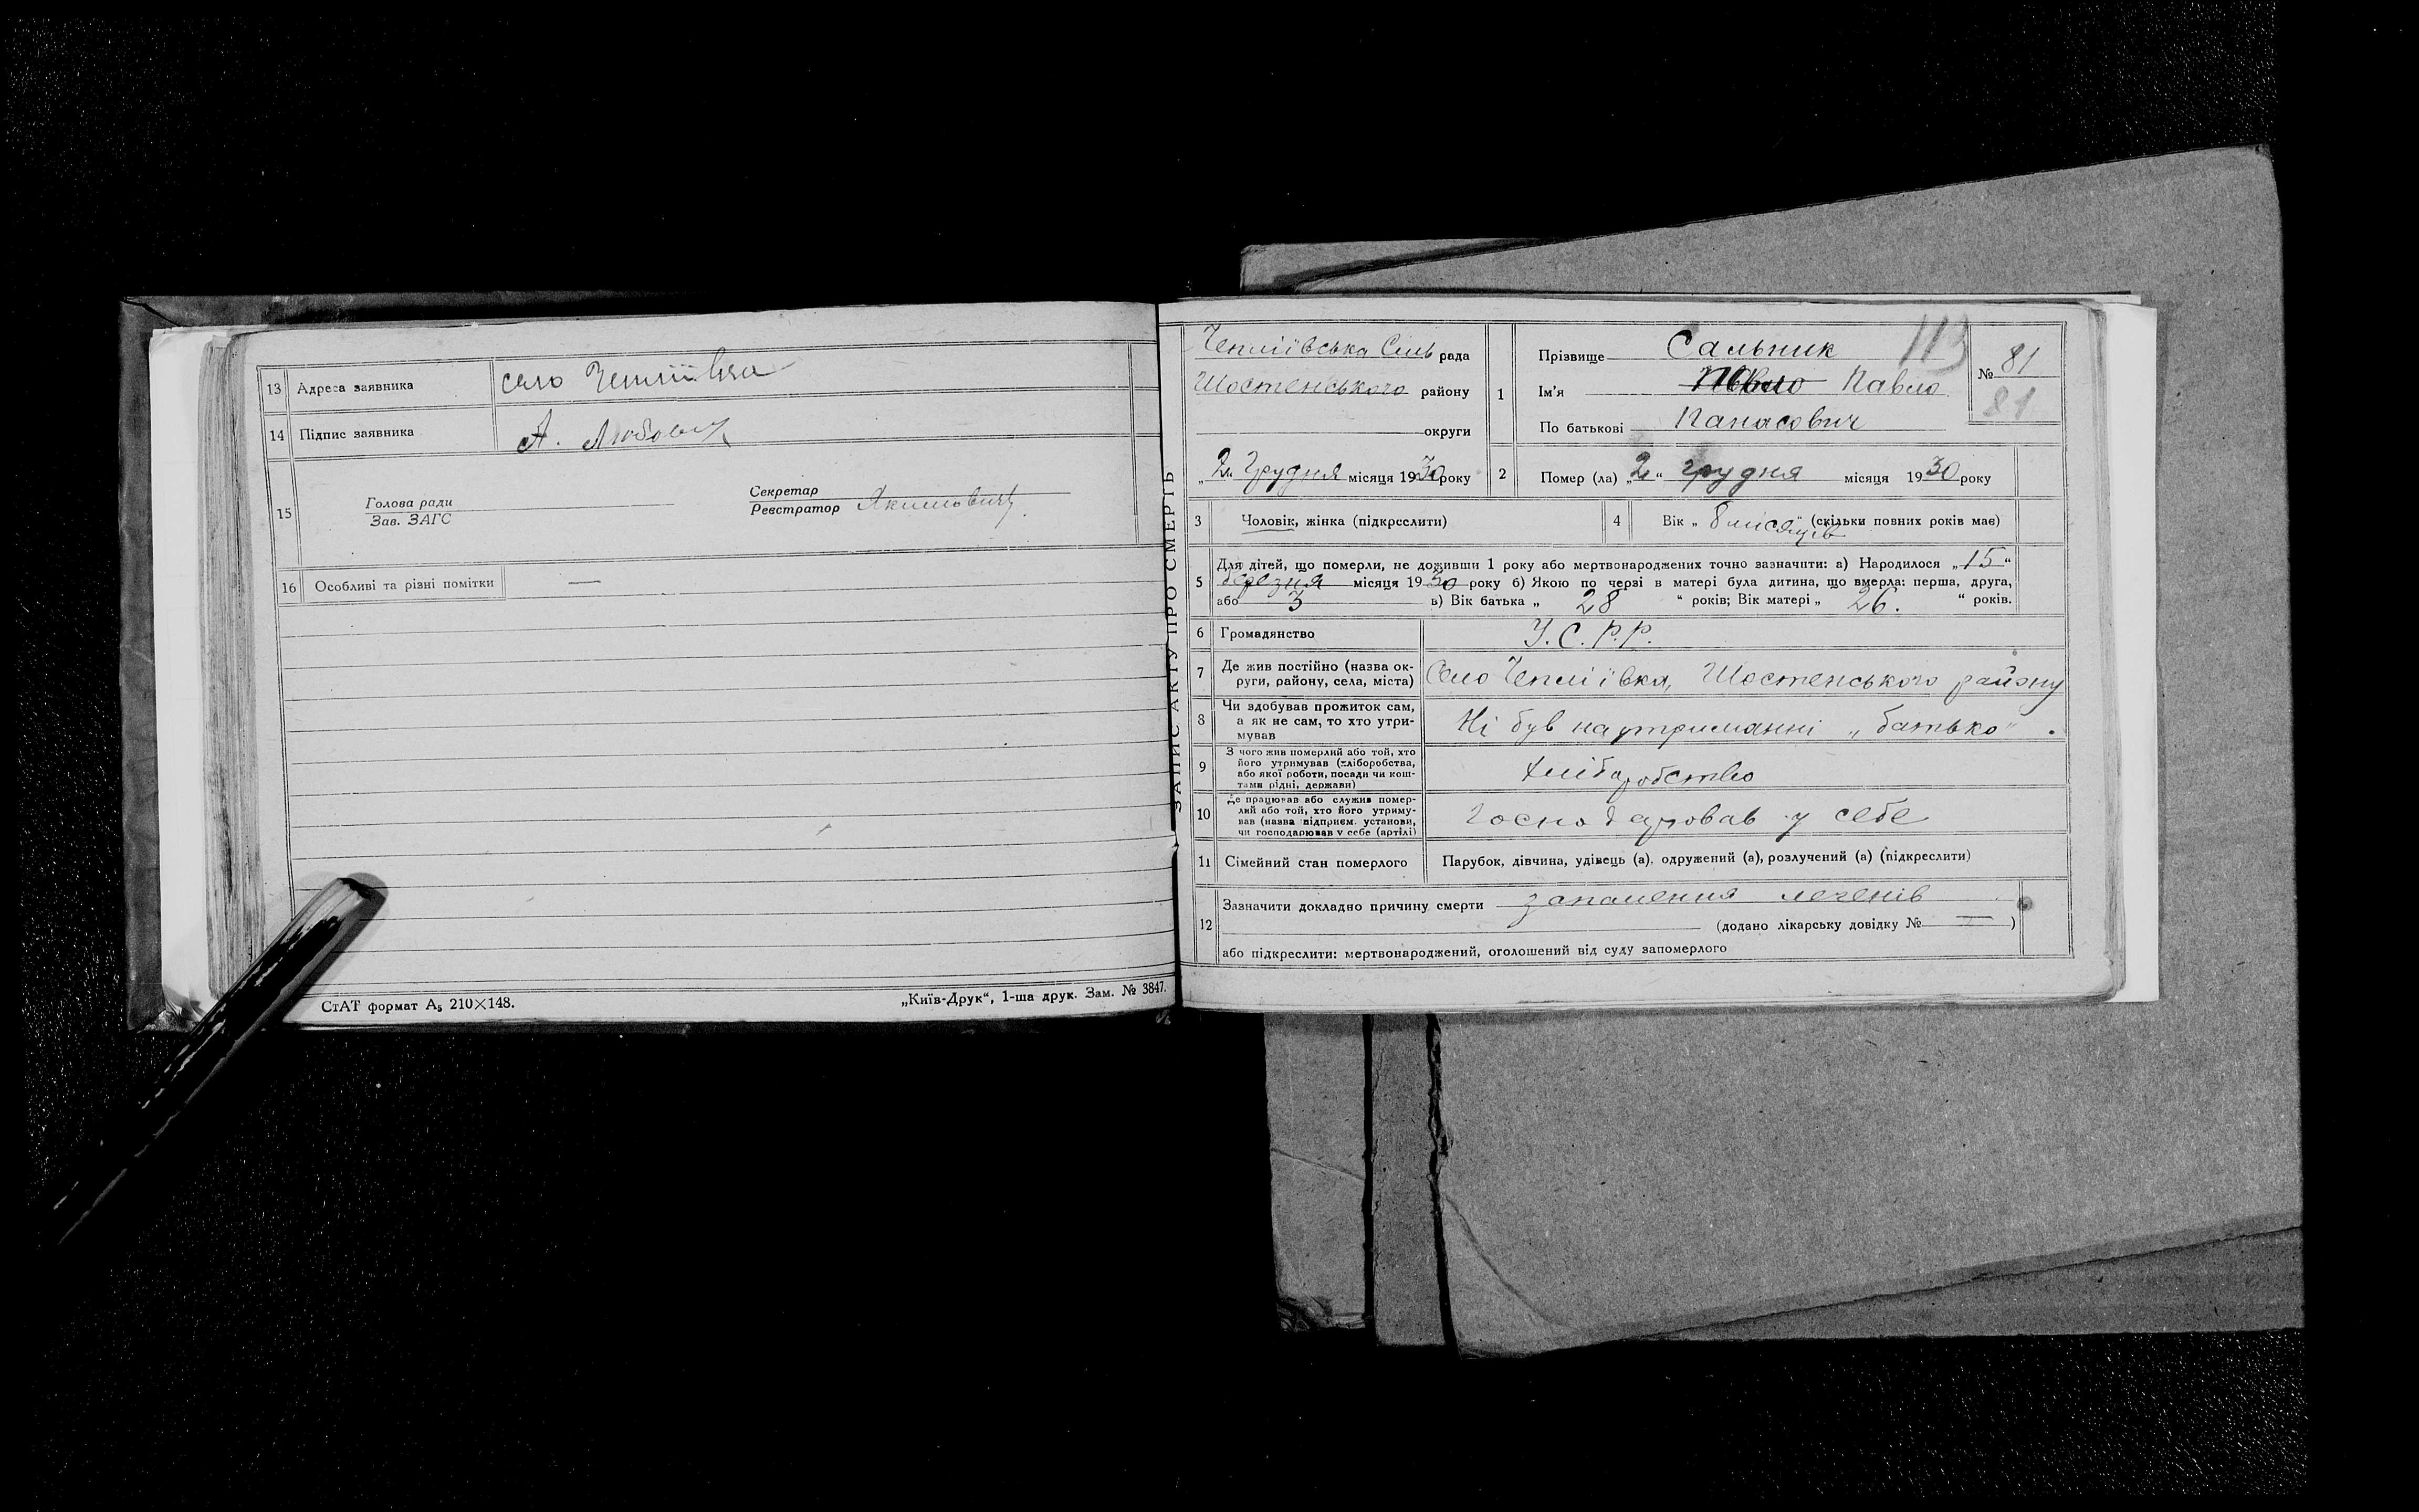 13 Адреса заявника село Чепліївка
14 Підпис заявника А.
15 Голова ради
Зав. ЗАГС
Секретар
Реєстратор Якимович
16 Особливі та різні помітки —
СтАТ формат А₅ 210×148.
„Київ-Друк“, 1-ша друк. Зам. № 3847.
ЗАПИС АКТУ ПРО СМЕРТЬ
Чепліївська Сіль рада
Шостенського району
округи
„2“ Грудня місяця 1930 року
1 Прізвище Сальник
Ім'я Павло
По батькові Панасович
113
№ 81
81
2 Помер (ла) „2“ грудня місяця 1930 року
3 Чоловік, жінка (підкреслити)
4 Вік „ 8 місяців “ (скільки повних років має)
5 Для дітей, що померли, не доживши 1 року або мертвонароджених точно зазначити: а) Народилося „15“
березня місяця 1930 року б) Якою по черзі в матері була дитина, що вмерла: перша, друга,
або 3 в) Вік батька „ 28 “ років; Вік матері „ 26. “ років.
6 Громадянство У.С.Р.Р.
7 Де жив постійно (назва ок-
руги, району, села, міста) Село Чепліївка, Шостенського району
8 Чи здобував прожиток сам,
а як не сам, то хто утри-
мував Ні був на утриманні „батько“.
9 З чого жив померлий або той, хто
його утримував (хліборобства,
або якої роботи, посади чи кош-
тами рідні, держави) хліборобство
10 Де працював або служив помер-
лий або той, хто його утриму-
вав (назва підприєм. установи,
чи господарював у себе (артілі) Господаровав у себе
11 Сімейний стан померлого Парубок, дівчина, удівець (а), одружений (а), розлучений (а) (підкреслити)
12 Зазначити докладно причину смерти запалення легенів
(додано лікарську довідку № — )
або підкреслити: мертвонароджений, оголошений від суду запомерлого